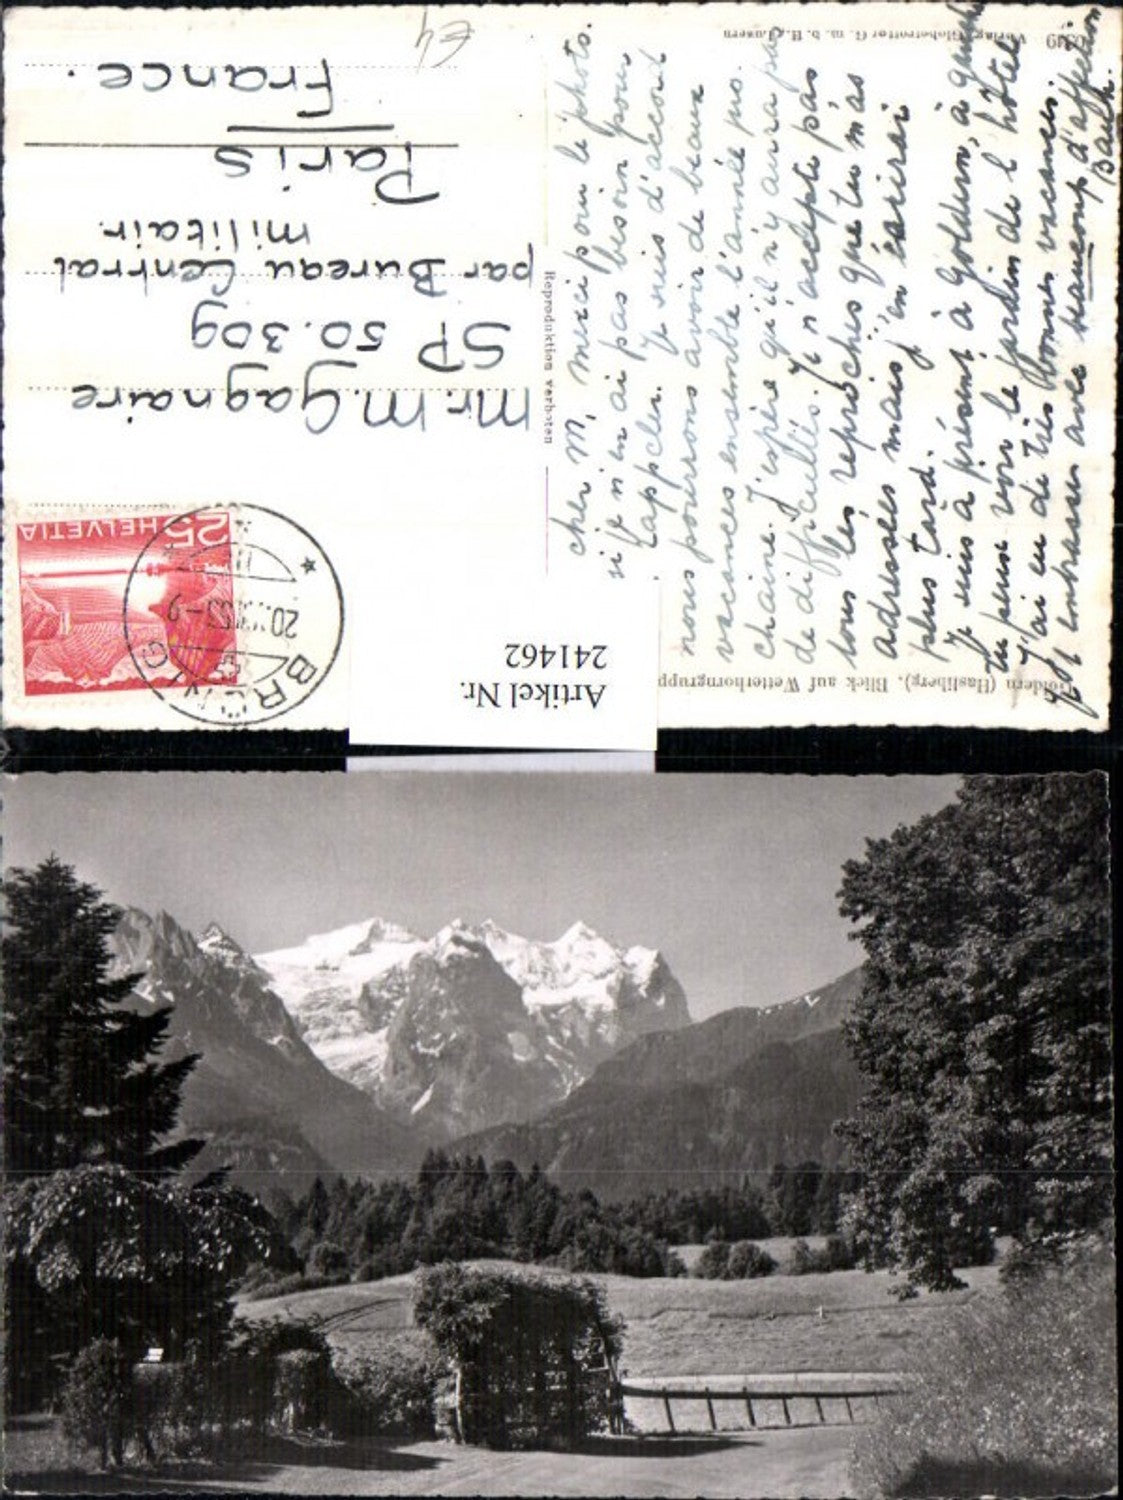 Goldern (Hasliberg). Blick auf Wetterhorngruppe
Verlag Globetrotter G. m. b. H., Luzern
Reproduktion verboten
cher M, merci pour le photo.
si je n'en ai pas besoin pour
l'appeler. Je suis d'accord
nous pourrons avoir de beaux
vacances ensemble l'année pro.
chaine. J'espère qu'il n'y aura pas
de difficultés. Je n'accepte pas
tous les reproches que tu m'as
adressés mais j'en écrirai
plus tard.
Je suis à présent à Goldern, à gauche
tu peux voir le jardin de l'hôtel
J'ai eu de très bonnes vacances.
embrasses avec beaucoup d'affection
Mr. M. Gagnaire
SP 50.309
par Bureau Central
militair.
Paris
France.
€4
HELVETIA
25
BRÜNIG
20.
53-9
Artikel Nr.
241462